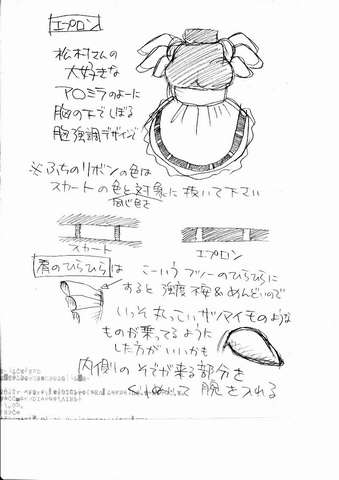 エプロン
松村さんの
大好きな
アロミラのよーに
胸の下でしぼる
胸強調デザインで
※ふちのリボンの色は
スカートの色と対象に抜いて下さい
スカート
エプロン
肩のひらひらは
こーいうフツーのひらひらに
すると強度 &めんどいので
いっそ丸っこいサツマイモのような
ものが乗ってるように
した方がいいかも
内側のそでが来る部分を
って腕を入れる